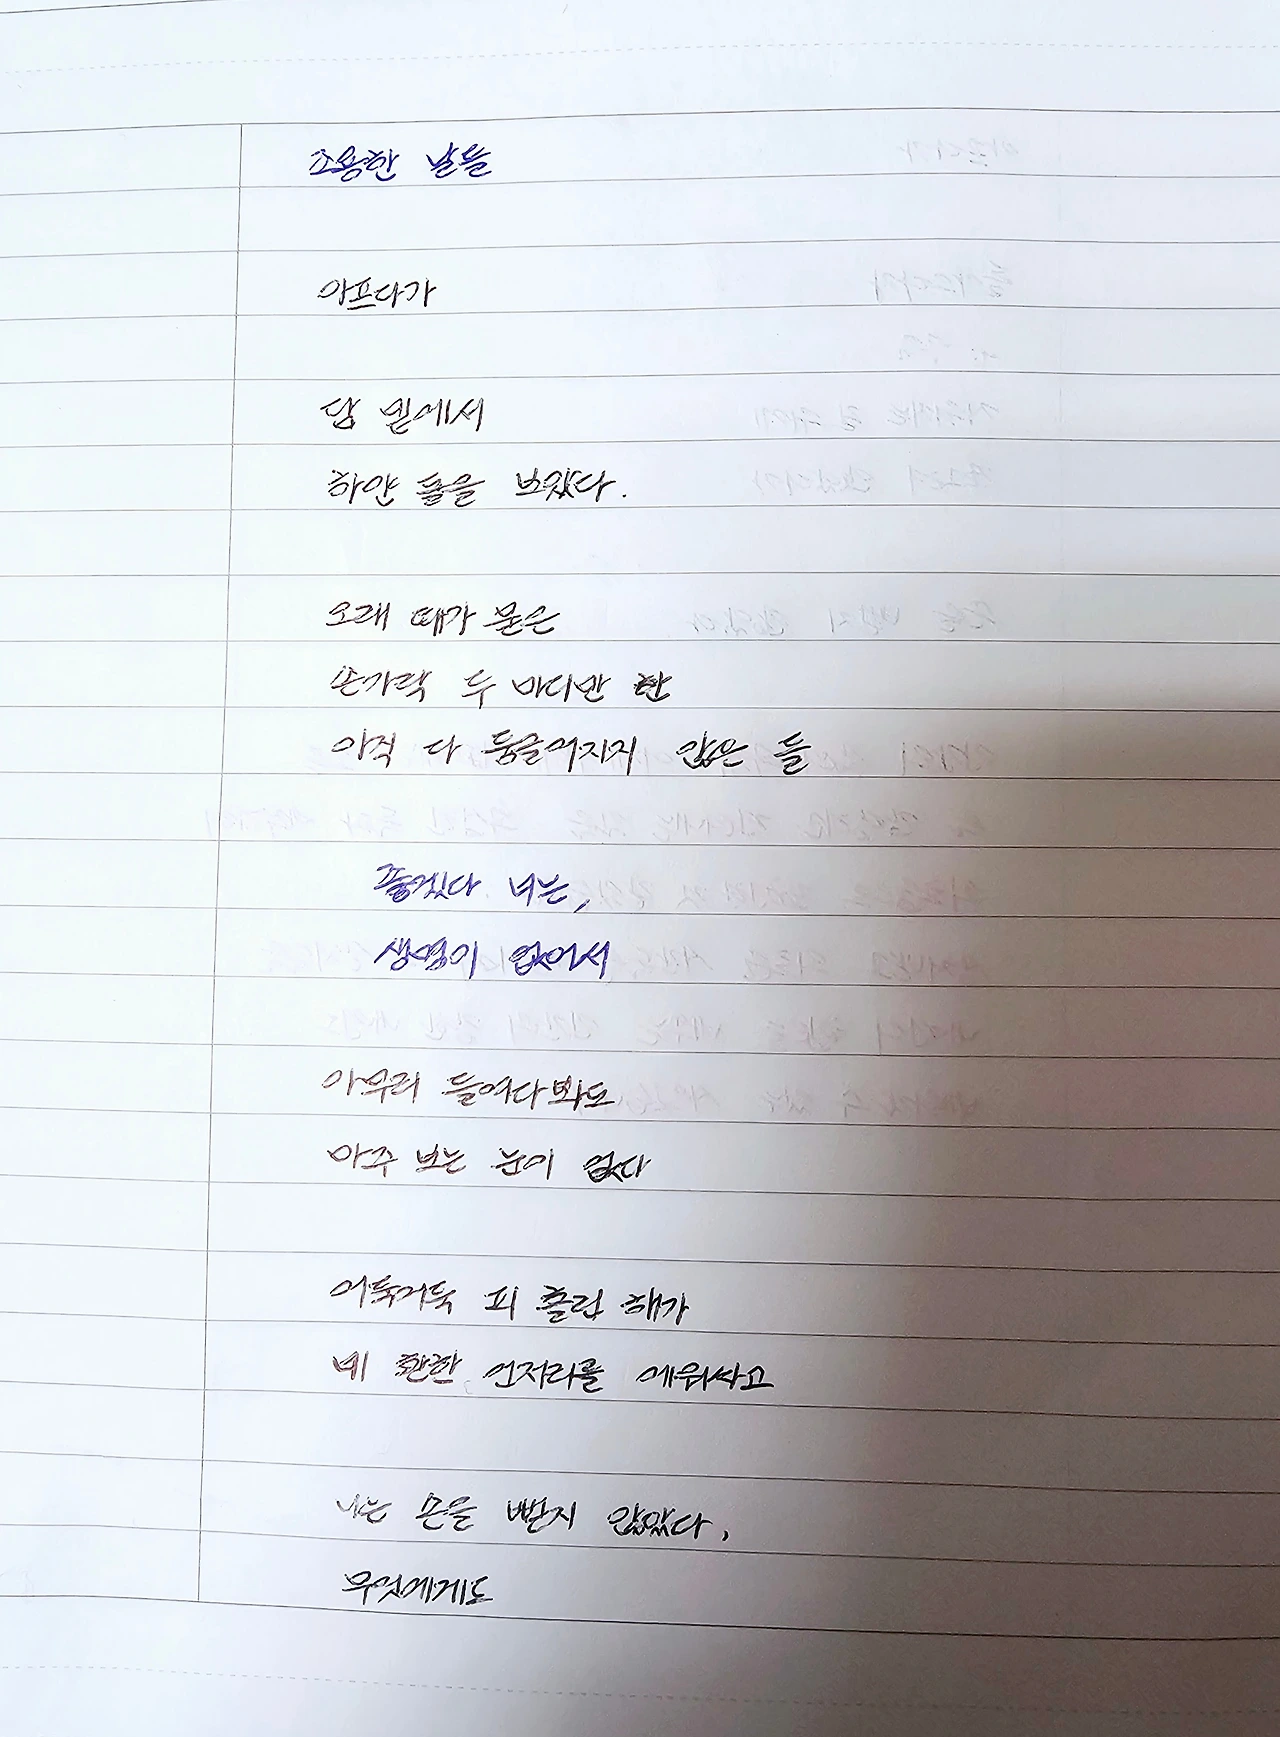 조용한 날들
아프다가
담 밑에서
하얀 돌을 보았다.
오래 때가 묻은
손가락 두 마디만 한
아직 다 둥글어지지 않은 돌
좋겠다 너는,
생명이 없어서
아무리 들여다봐도
마주 보는 눈이 없다
어둑어둑 피 흘린 해가
네 환한 언저리를 에워싸고
나는 손을 뻗지 않았다,
무엇에게도